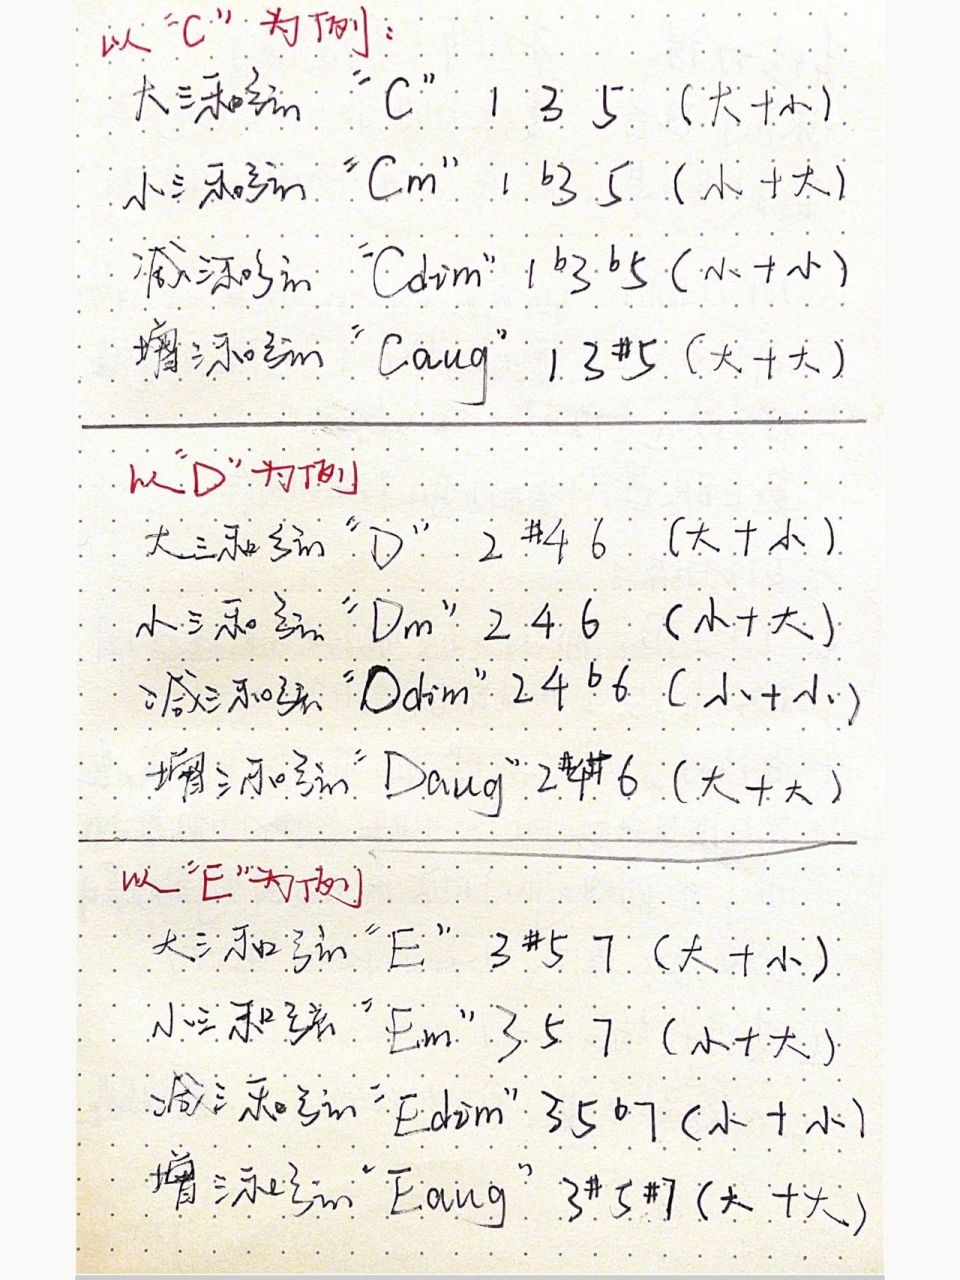 以“C”为例：
大三和弦 “C” 1 3 5 (大+小)
小三和弦 “Cm” 1 b3 5 (小+大)
减三和弦 “Cdim” 1 b3 b5 (小+小)
增三和弦 “Caug” 1 3 #5 (大+大)
以“D”为例
大三和弦 “D” 2 #4 6 (大+小)
小三和弦 “Dm” 2 4 6 (小+大)
减三和弦 “Ddim” 2 4 b6 (小+小)
增三和弦 “Daug” 2 #4 #6 (大+大)
以“E”为例
大三和弦 “E” 3 #5 7 (大+小)
小三和弦 “Em” 3 5 7 (小+大)
减三和弦 “Edim” 3 5 b7 (小+小)
增三和弦 “Eaug” 3 #5 #7 (大+大)